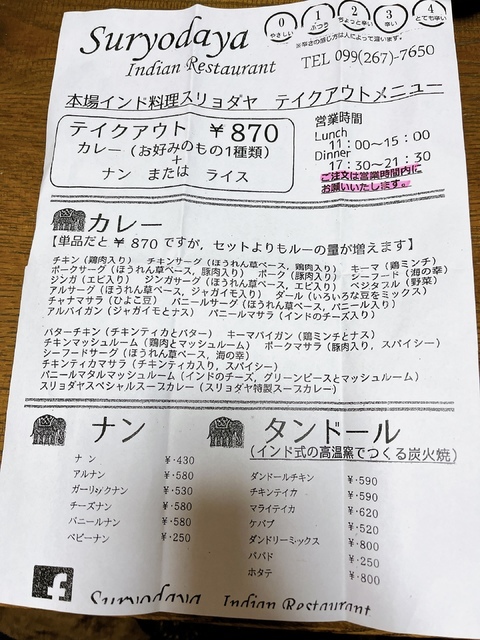 0 やさしい
1 ふつう
2 ちょっと辛い
3 辛い
4 とても辛い
※辛さの感じ方は人によって違います。
Suryodaya
Indian Restaurant
TEL 099(267)-7650
本場インド料理スリョダヤ テイクアウトメニュー
テイクアウト ¥870
カレー(お好みのもの1種類)
+
ナン または ライス
営業時間
Lunch
11:00~15:00
Dinner
17:30~21:30
ご注文は営業時間内に
お願いいたします。
カレー
【単品だと ¥ 870 ですが, セットよりもルーの量が増えます】
チキン(鶏肉入り) チキンサーグ(ほうれん草ベース, 鶏肉入り) キーマ(鶏ミンチ)
ポークサーグ(ほうれん草ベース, 豚肉入り) ポーク(豚肉入り) シーフード(海の幸)
ジンガ(エビ入り) ジンガサーグ(ほうれん草ベース, エビ入り) ベジタブル(野菜)
アルサーグ(ほうれん草ベース, ジャガイモ入り) ダール(いろいろな豆をミックス)
チャナマサラ(ひよこ豆) パニールサーグ(ほうれん草ベース, パニール入り)
アルバイガン(ジャガイモとナス) パニールマサラ(インドのチーズ入り)
バターチキン(チキンティカとバター) キーマバイガン(鶏ミンチとナス)
チキンマッシュルーム(鶏肉とマッシュルーム) ポークマサラ(豚肉入り, スパイシー)
シーフードサーグ(ほうれん草ベース, 海の幸)
チキンティカマサラ(チキンティカ入り, スパイシー)
パニールマタルマッシュルーム(インドのチーズ, グリーンピースとマッシュルーム)
スリョダヤスペシャルスープカレー(スリョダヤ特製スープカレー)
ナン
ナン ¥・430
アルナン ¥・580
ガーリックナン ¥・530
チーズナン ¥・580
パニールナン ¥・580
ベビーナン ¥・250
タンドール
(インド式の高温窯でつくる炭火焼)
ダンドールチキン ¥・590
チキンテイカ ¥・590
マライテイカ ¥・620
ケバブ ¥・520
ダンドリーミックス ¥・800
パパド ¥・250
ホタテ ¥・800
f
Suryodaya Indian Restaurant